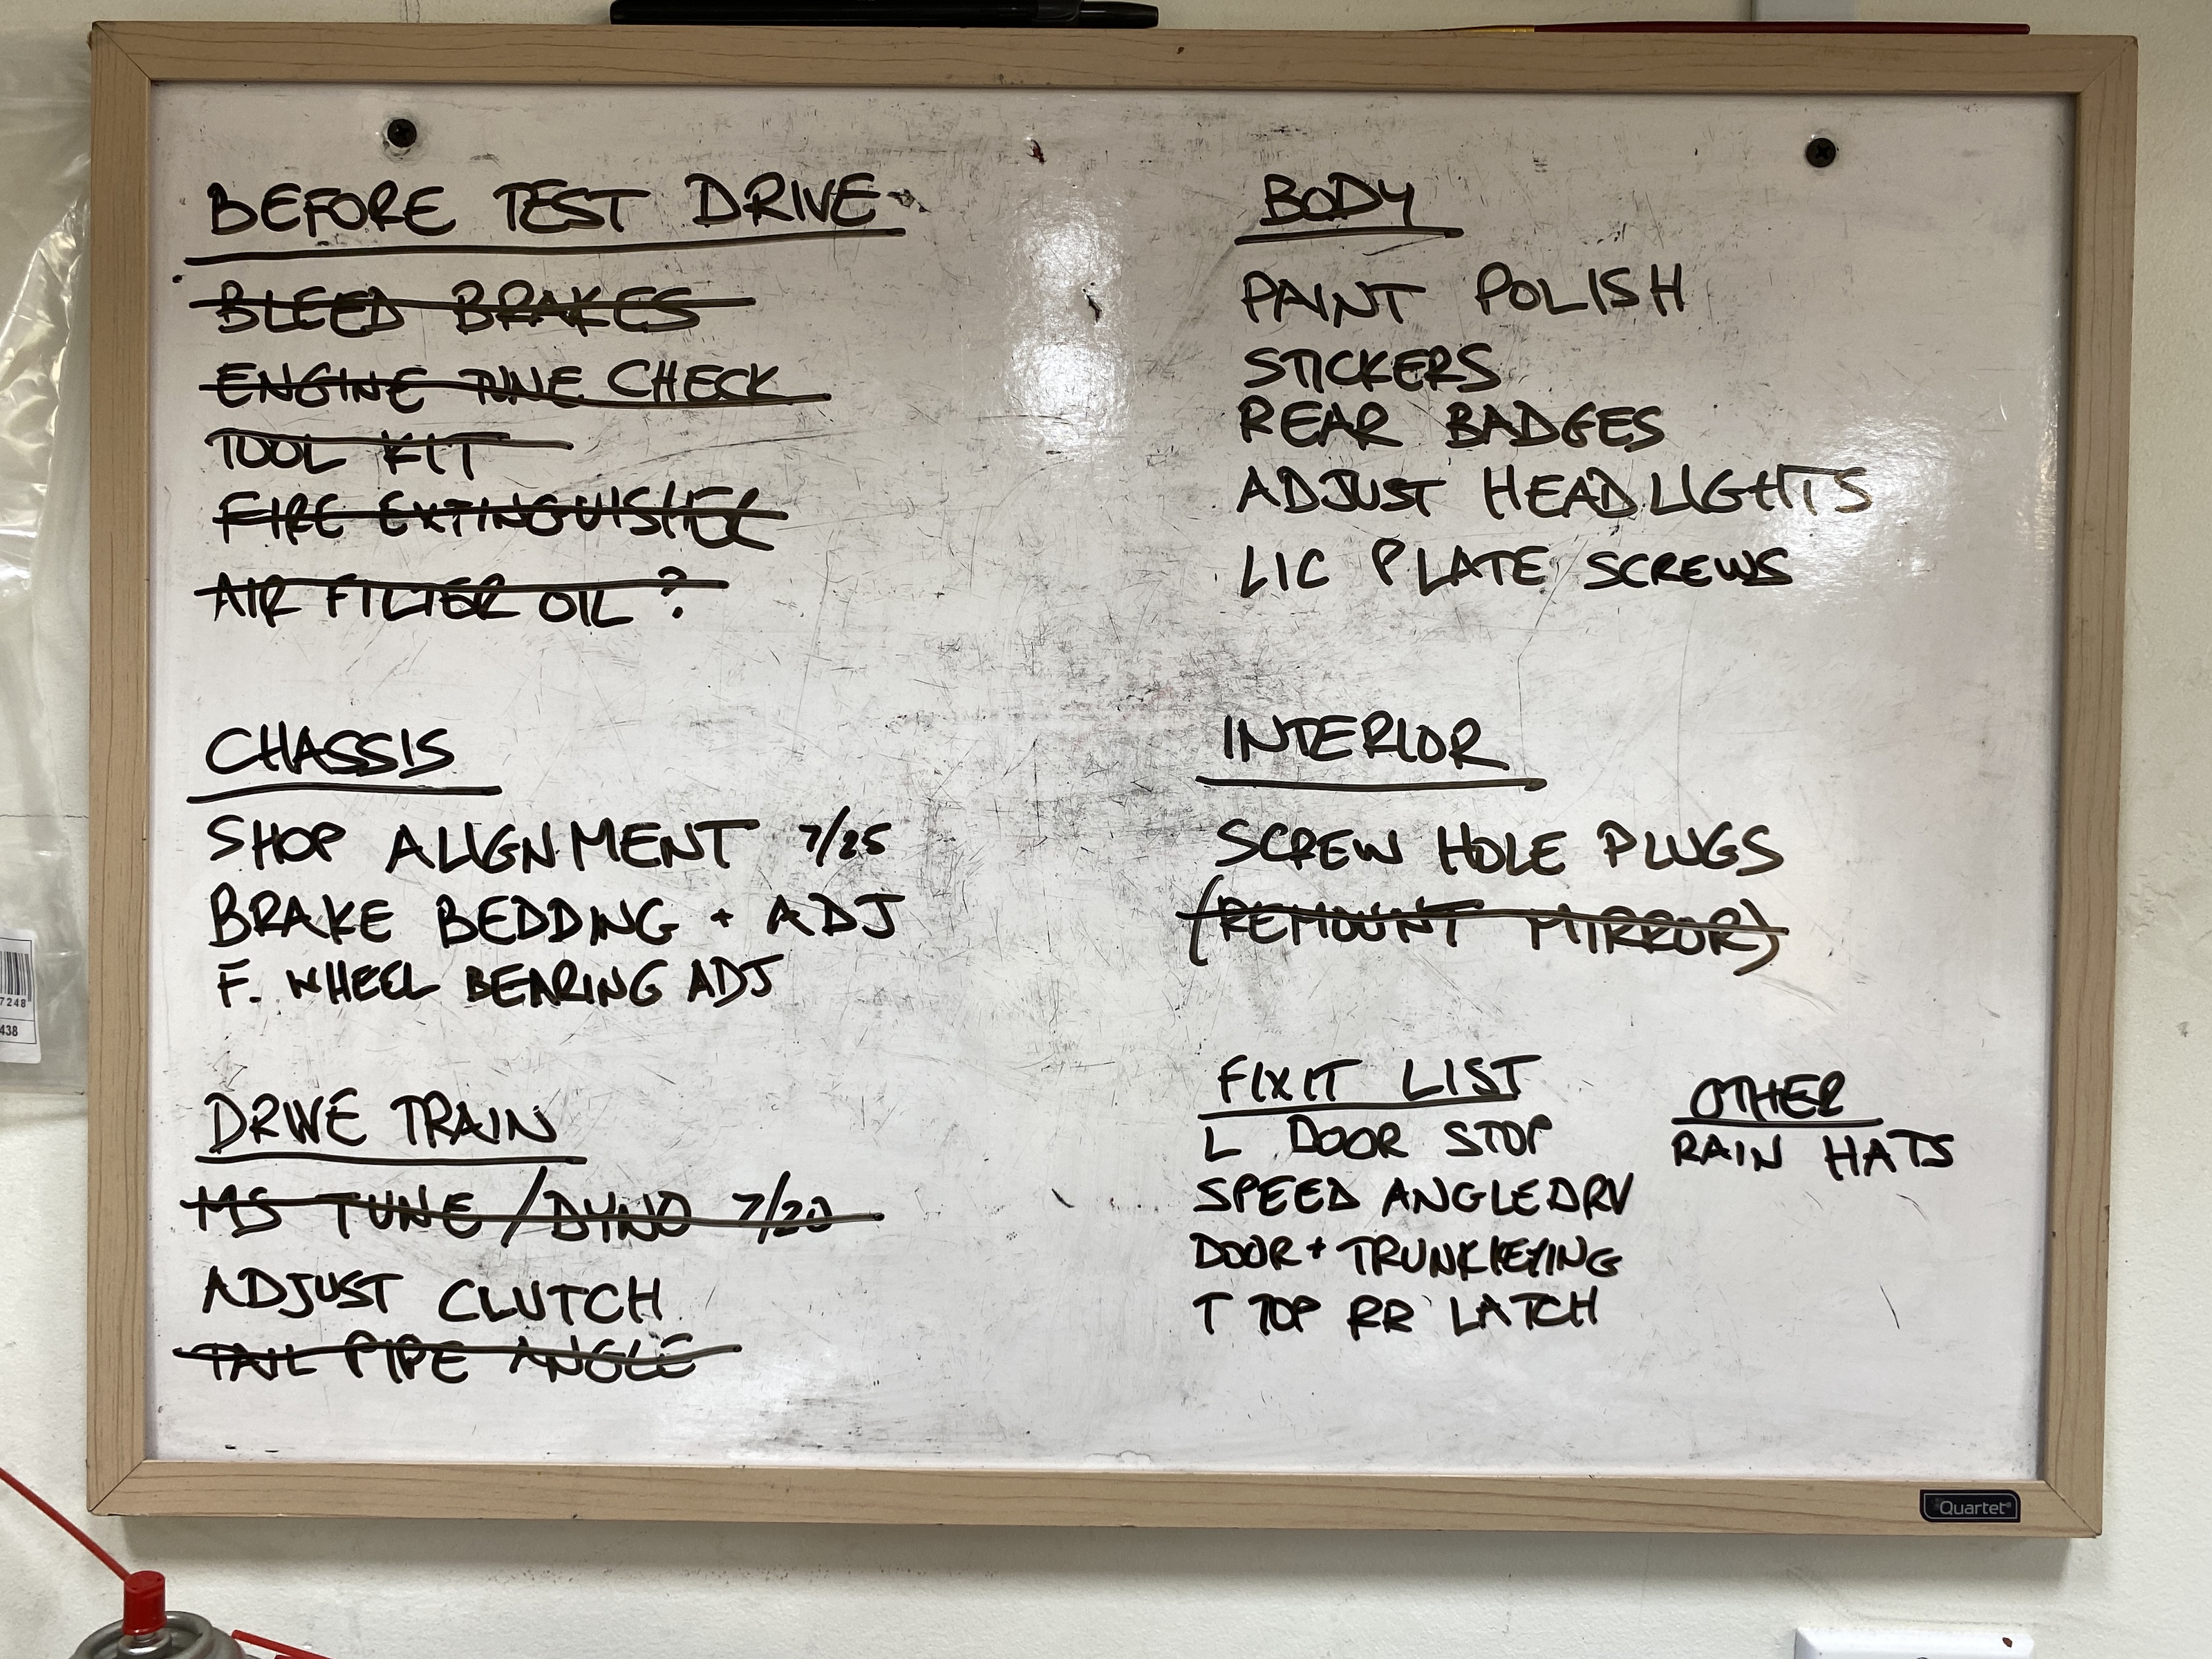 BEFORE TEST DRIVE
BLEED BRAKES
ENGINE TUNE CHECK
TOOL KIT
FIRE EXTINGUISHER
AIR FILTER OIL ?
CHASSIS
SHOP ALIGNMENT 7/25
BRAKE BEDDING + ADJ
F. WHEEL BEARING ADJ
DRIVE TRAIN
MS TUNE / DYNO 7/20
ADJUST CLUTCH
TAIL PIPE ANGLE
BODY
PAINT POLISH
STICKERS
REAR BADGES
ADJUST HEADLIGHTS
LIC PLATE SCREWS
INTERIOR
SCREW HOLE PLUGS
(REMOUNT MIRROR)
FIXIT LIST
L DOOR STOP
SPEED ANGLEDRV
DOOR + TRUNK KEYING
T TOP RR LATCH
OTHER
RAIN HATS
Quartet
7248
438